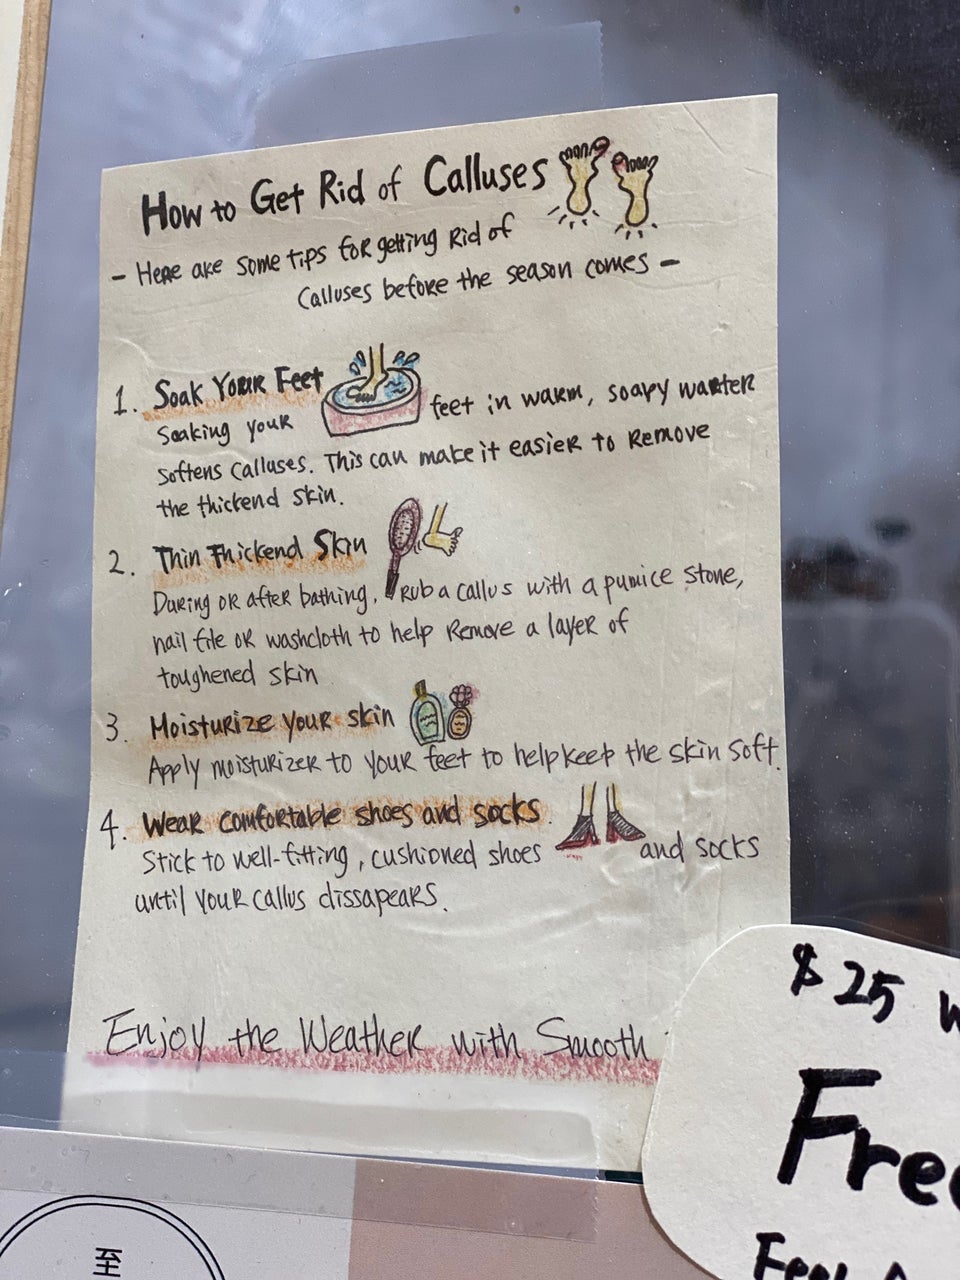 How to Get Rid of Calluses
- Here are some tips for getting Rid of
Calluses before the season comes -
1. Soak Your Feet
Soaking your feet in warm, soapy warter
softens calluses. This can make it easier to Remove
the thickend skin.
2. Thin Thickend Skin
During or after bathing, Rub a callus with a pumice stone,
nail file or washcloth to help Remove a layer of
toughened skin
3. Moisturize your skin
Apply moisturizer to your feet to help keep the skin soft.
4. Wear comfortable shoes and socks.
Stick to well-fitting, cushioned shoes and socks
until your callus dissapears.
Enjoy the Weather with Smooth
$25
Free
至